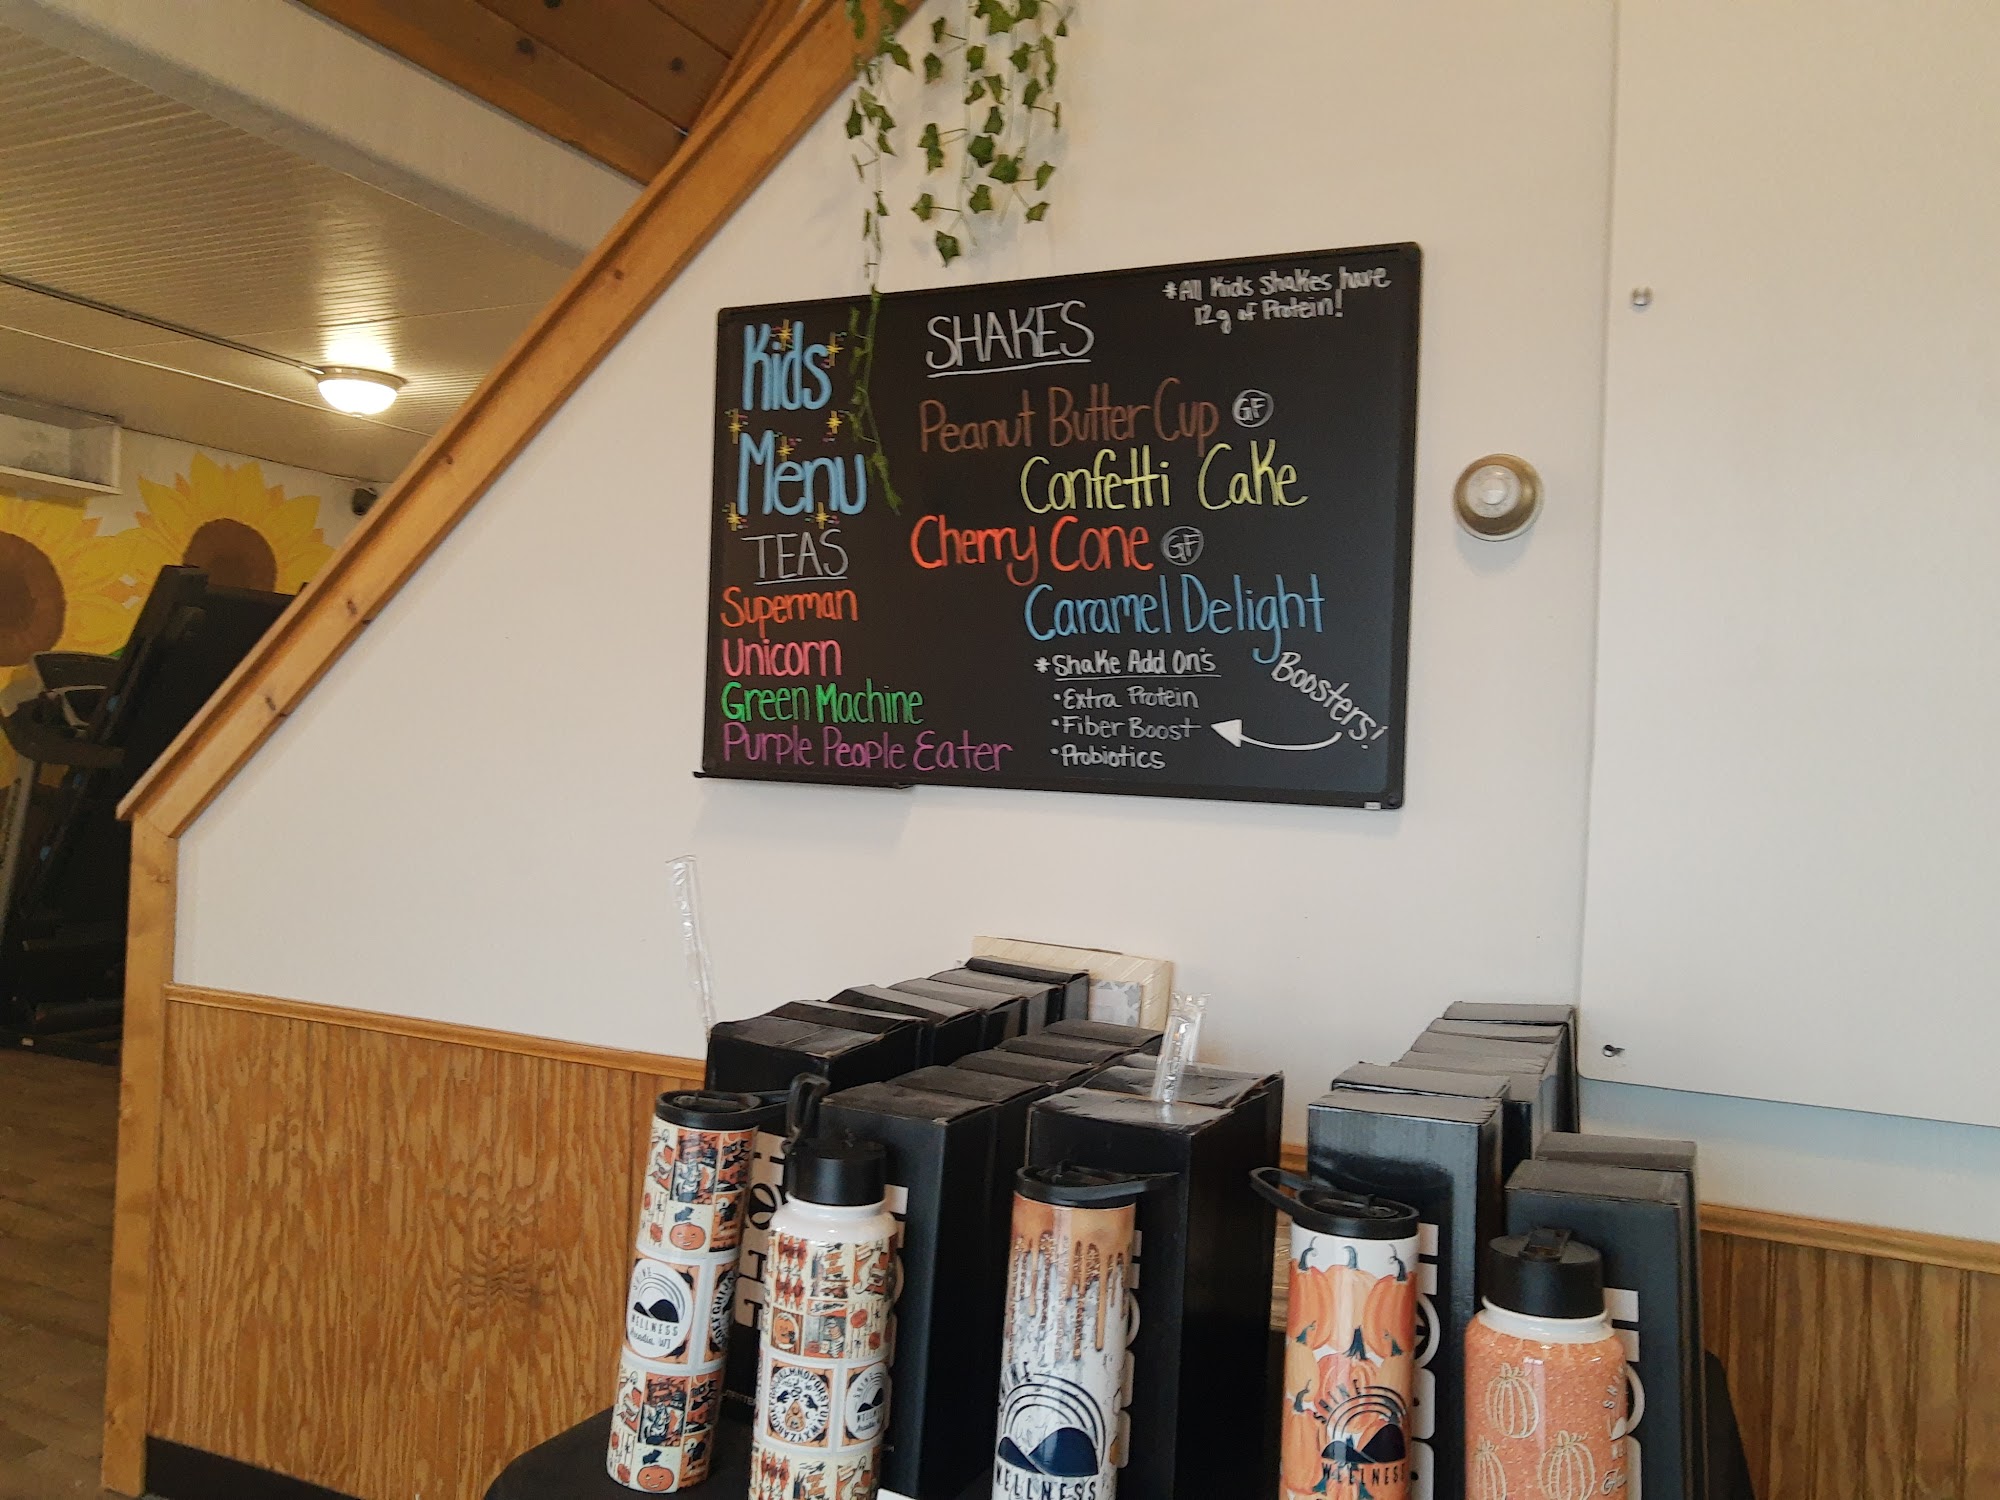 Kids
Menu
TEAS
Superman
Unicorn
Green Machine
Purple People Eater
SHAKES
*All Kids Shakes have
12g of Protein!
Peanut Butter Cup GF
Confetti Cake
Cherry Cone GF
Caramel Delight
*Shake Add On's
•Extra Protein
•Fiber Boost
•Probiotics
Boosters!
SHINE
WELLNESS
Arcadia, WI
SHINE
WELLNESS
SHINE
WELLNESS